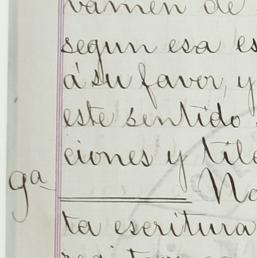 vamen de
segun esa es
á su favor, y
este sentido
ciones y til
ga
No
ta escritura